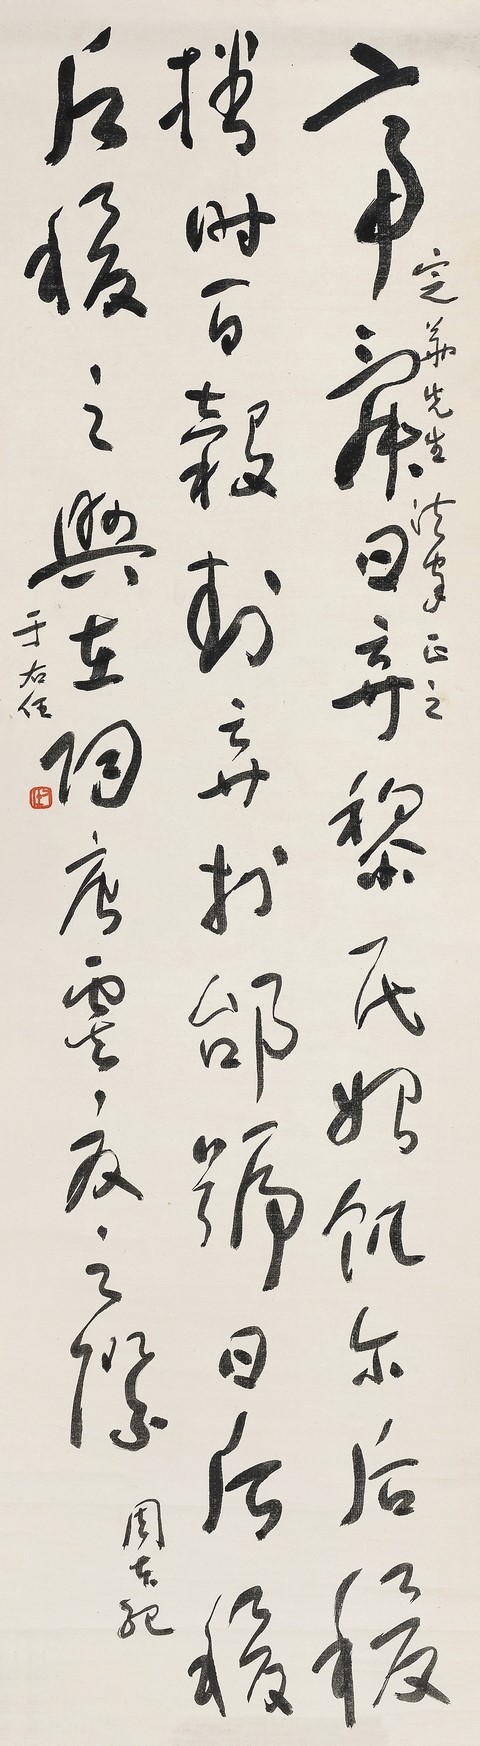 定華先生法家正之
帝舜曰弃黎民始飢尔后稷
播時百穀封弃於邰號曰后稷
后稷之興在陶唐虞夏之際
周本紀
于右任